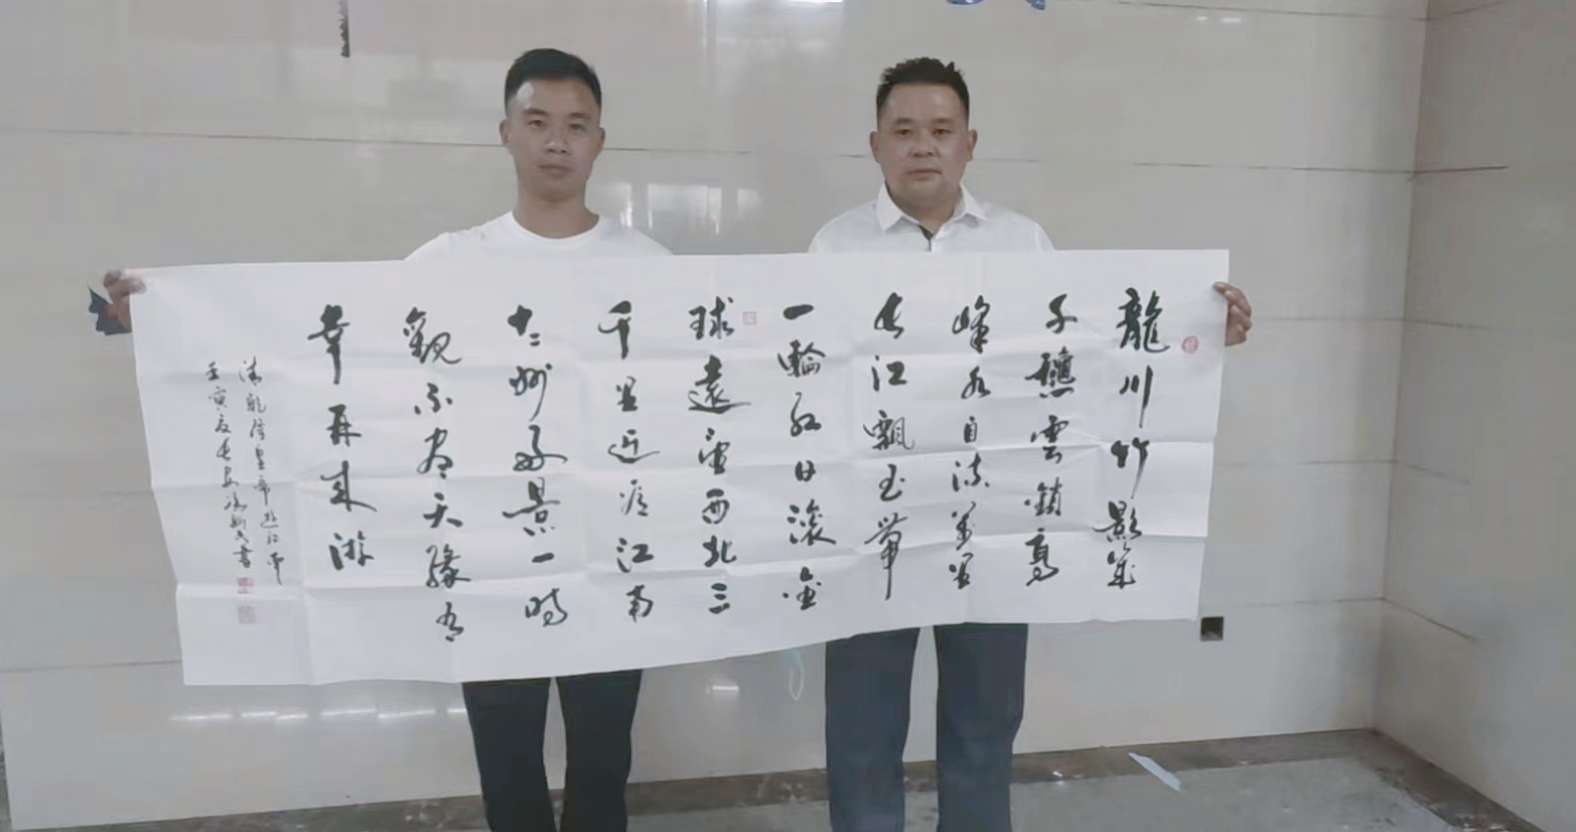 龍川竹影幾
千龝雲鎖高
峰水自流萬里
長江飄玉帶
一輪紅日滾金
球遠望西北三
千里近看江南
十二州好景一時
觀不盡天緣有
幸再來游
清乾隆皇帝遊江南
壬寅夏長安書